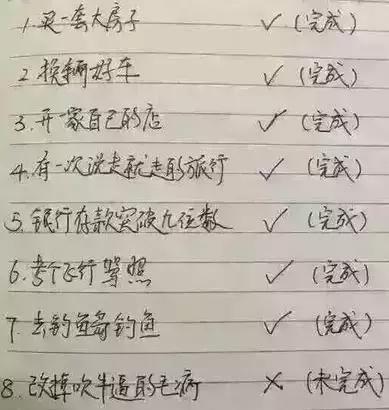 1.买一套大房子 ✓ (完成)
2.换辆好车 ✓ (完成)
3.开一家自己的店 ✓ (完成)
4.有一次说走就走的旅行 ✓ (完成)
5.银行存款突破九位数 ✓ (完成)
6.考个飞行驾照 ✓ (完成)
7.去钓鱼岛钓鱼 ✓ (完成)
8.改掉吹牛逼的毛病 × (未完成)